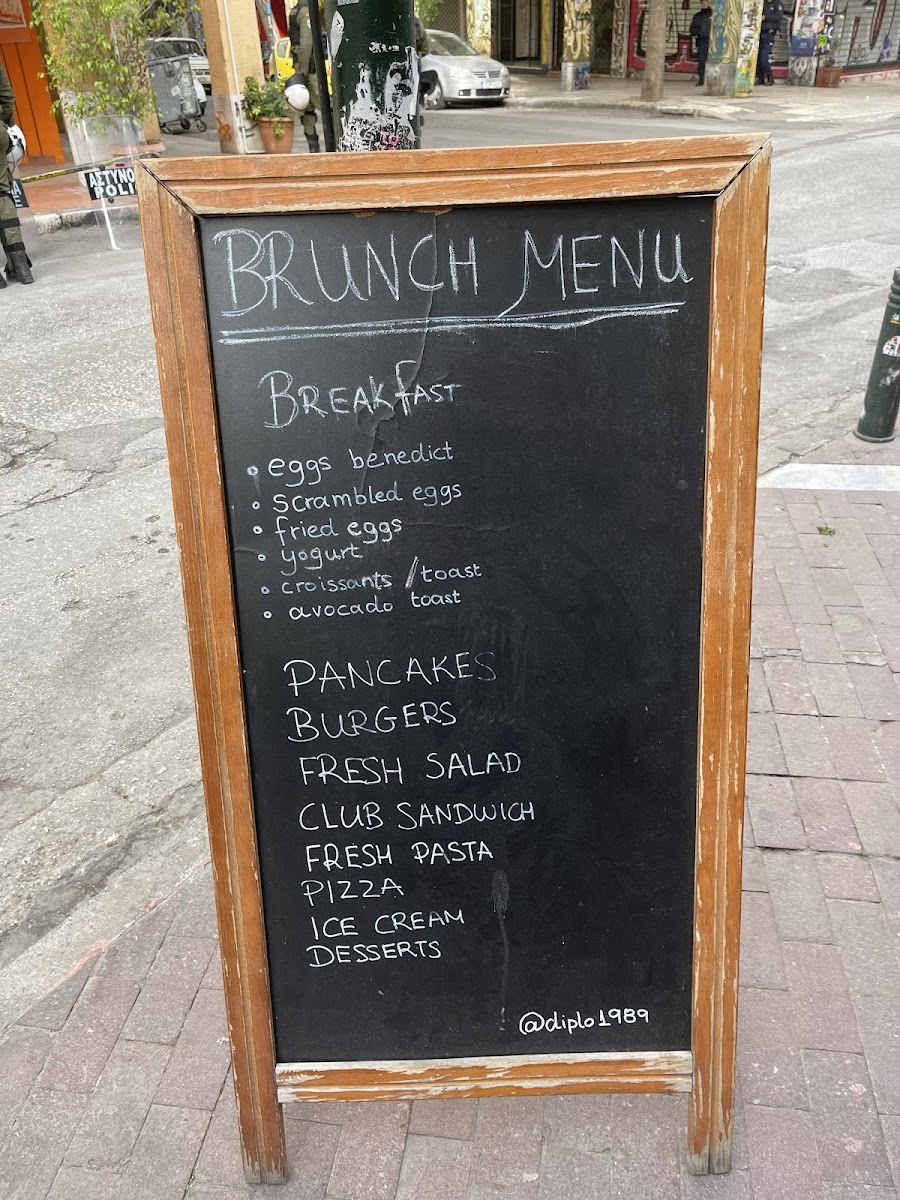 ΑΣΤΥΝΟ
POLI
BRUNCH MENU
BREAKfAST
• eggs benedict
• scrambled eggs
• fried eggs
• yogurt
• croissants /toast
• avocado toast
PANCAKES
BURGERS
FRESH SALAD
CLUB SANDWICH
FRESH PASTA
PIZZA
ICE CREAM
DESSERTS
@diplo1989